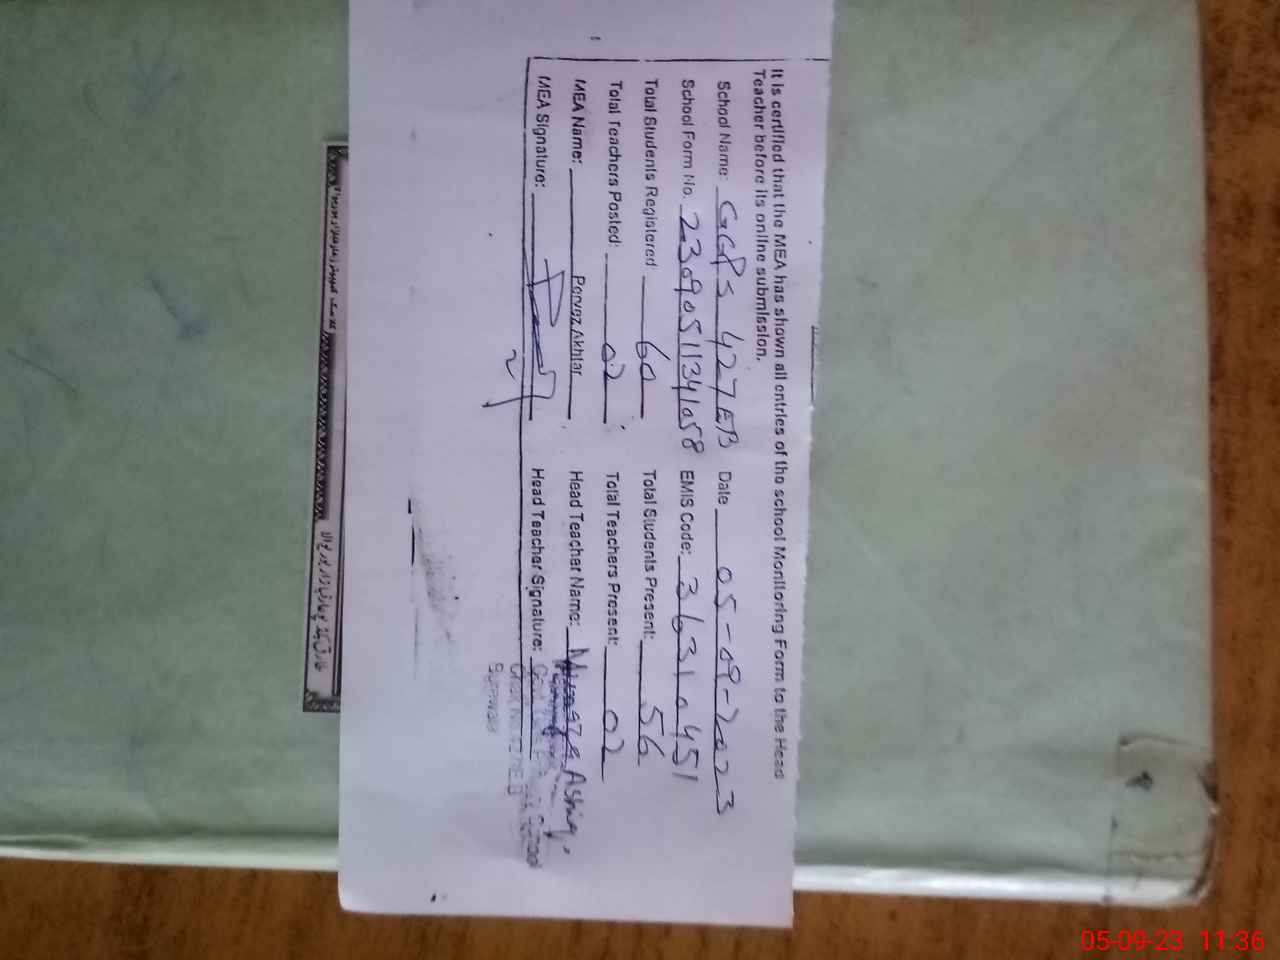 It is certified that the MEA has shown all entries of the school Monitoring Form to the Head
Teacher before its online submission.
School Name: GGPS 427EB Date 05-09-2023
School Form No. 23090511341058 EMIS Code: 36310451
Total Students Registered: 60 Total Students Present: 56
Total Teachers Posted: 02 Total Teachers Present: 02
MEA Name: Pervez Akhtar Head Teacher Name:
MEA Signature: Head Teacher Signature:
Burewala
05-09-23 11:36